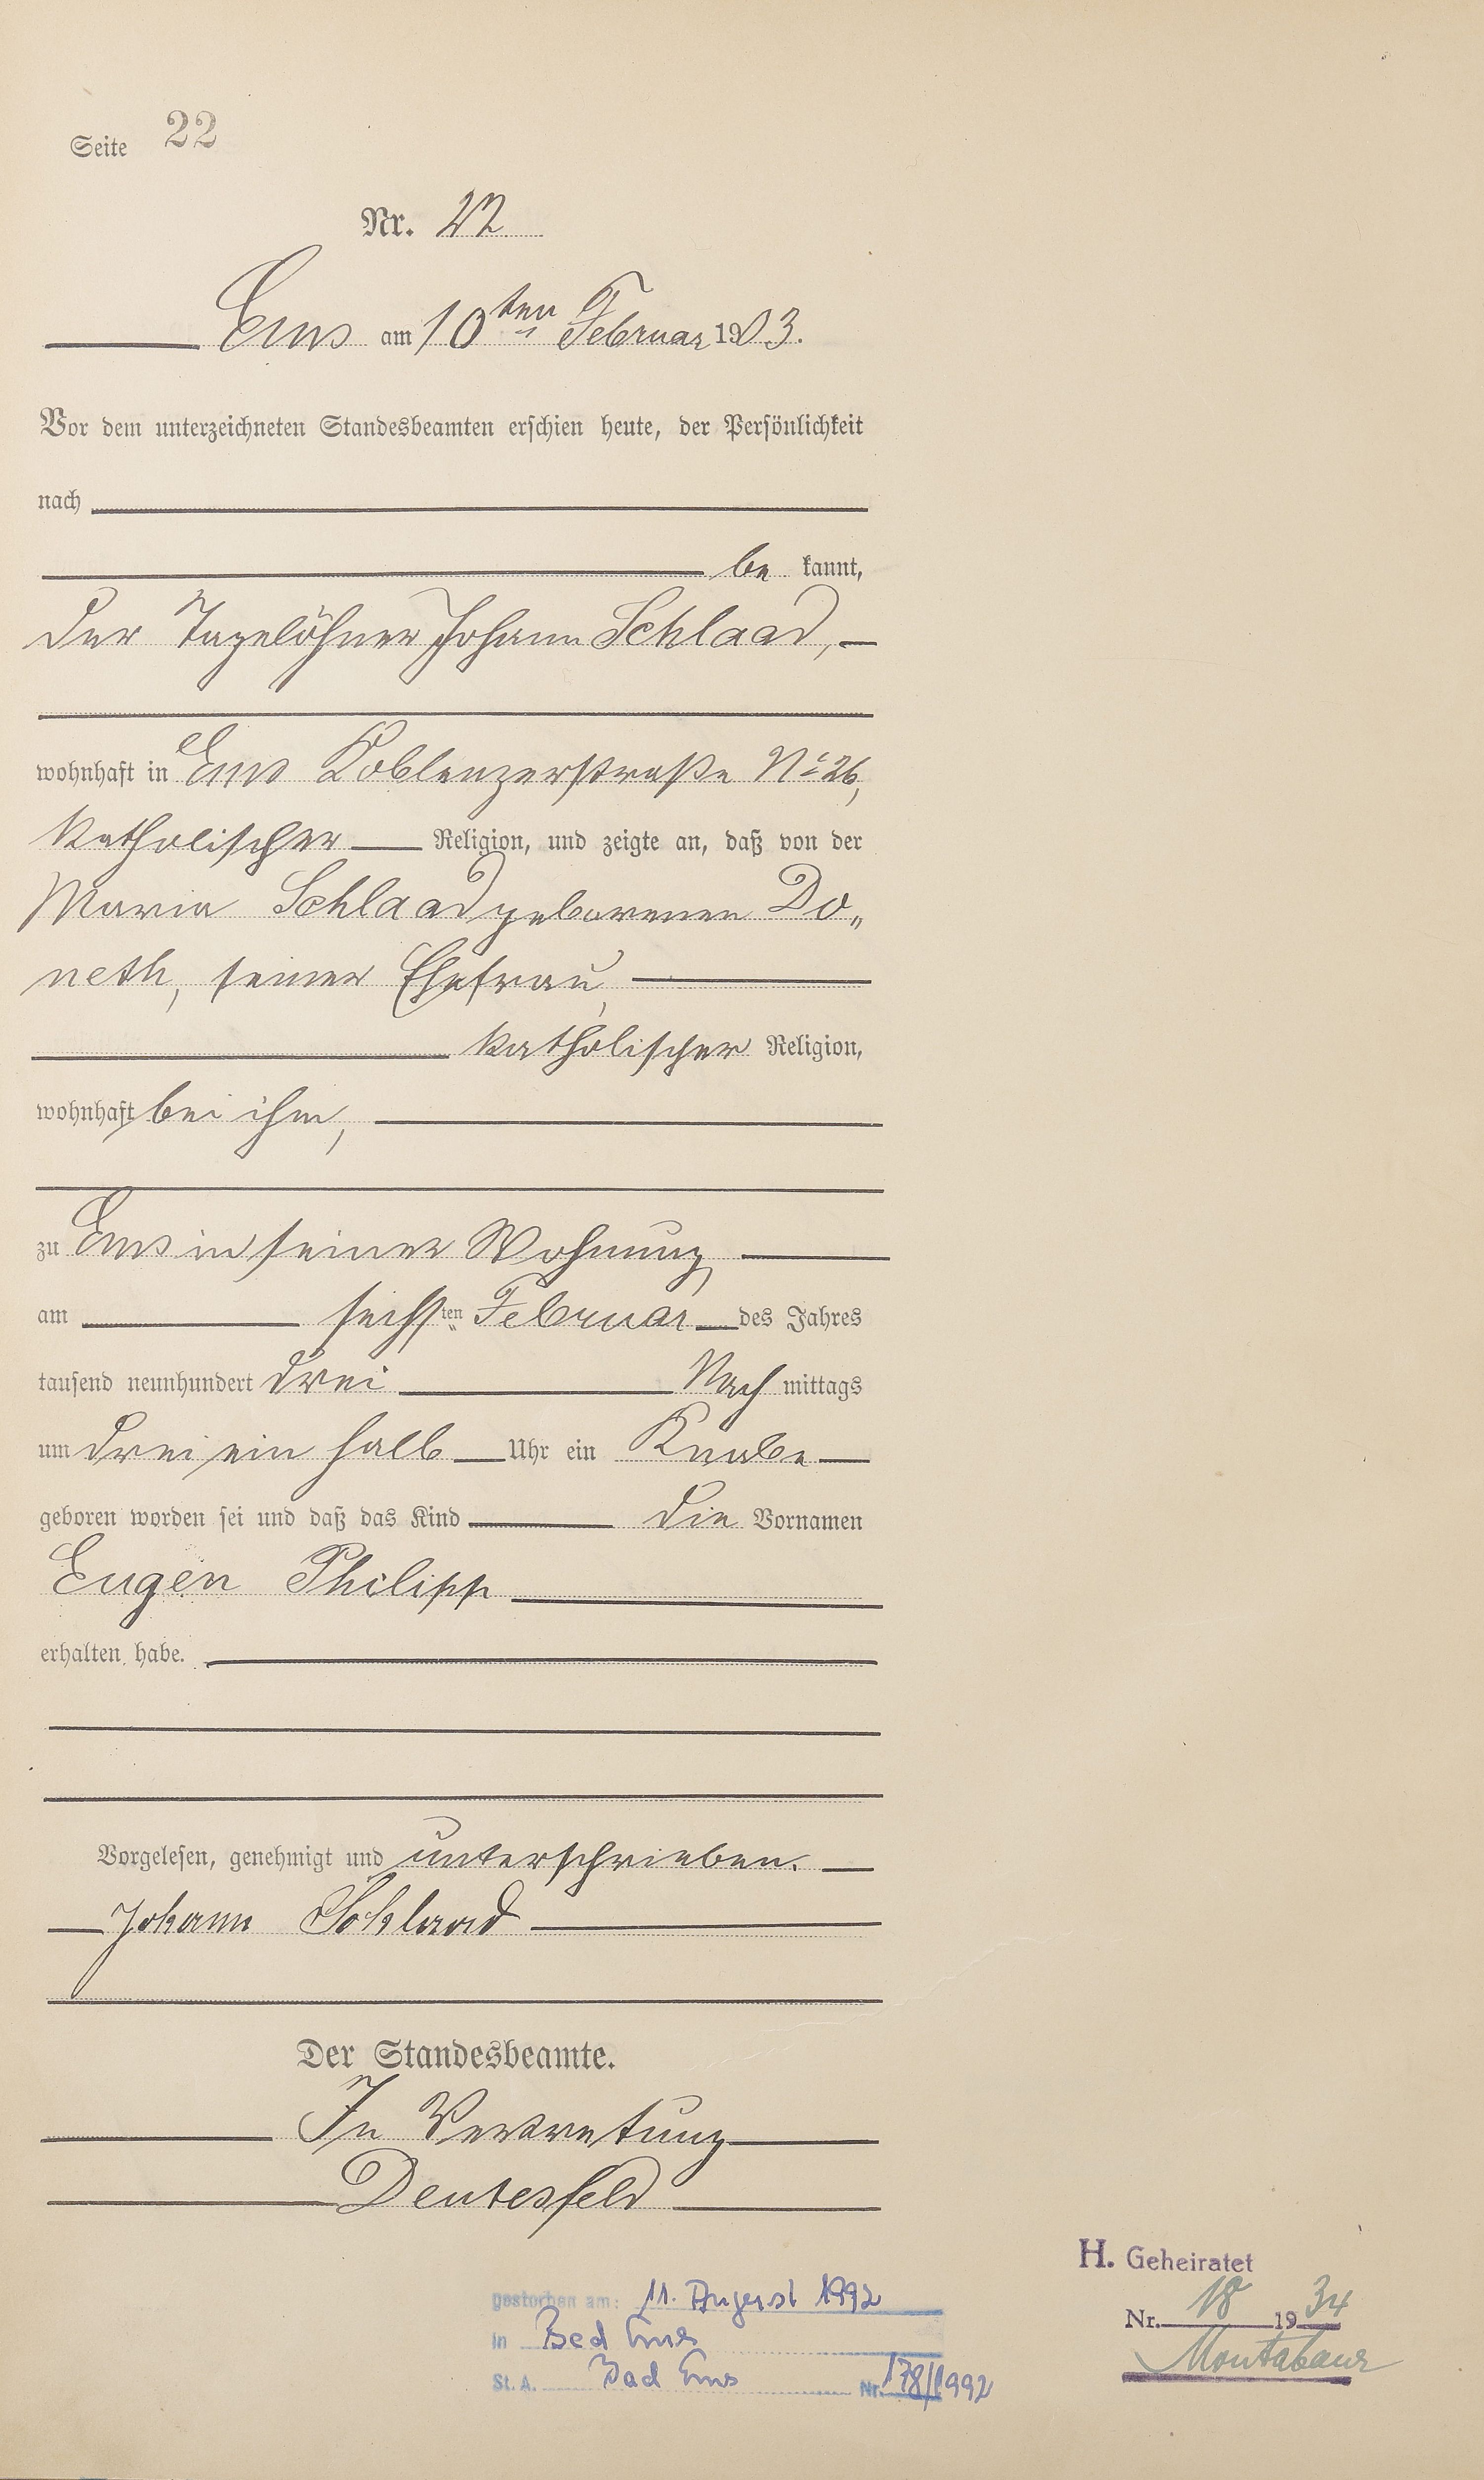 Seite 22
Nr. 22
Ems am 10ten Februar 1903.
Vor dem unterzeichneten Standesbeamten erschien heute, der Persönlichkeit
nach
be kannt,
der Tagelöhner Johann Schlaad,
wohnhaft in Ems Koblenzerstraße No 26,
katholischer Religion, und zeigte an, daß von der
Maria Schlaad geborenen Do„
neth, seiner Ehefrau,
katholischer Religion,
wohnhaft bei ihm,
zu Ems in seiner Wohnung,
am sechsten Februar des Jahres
tausend neunhundert drei Nach mittags
um drei ein halb Uhr ein Knabe
geboren worden sei und daß das Kind die Vornamen
Eugen Philipp
erhalten habe.
Vorgelesen, genehmigt und unterschrieben.
Johann Schlaad
Der Standesbeamte.
In Vertretung
Deutesfeld
H. Geheiratet
Nr. 18 1934
Montabaur
gestorben am: 11. August 1992
in Bad Ems
St. A. Bad Ems Nr. 178/1992